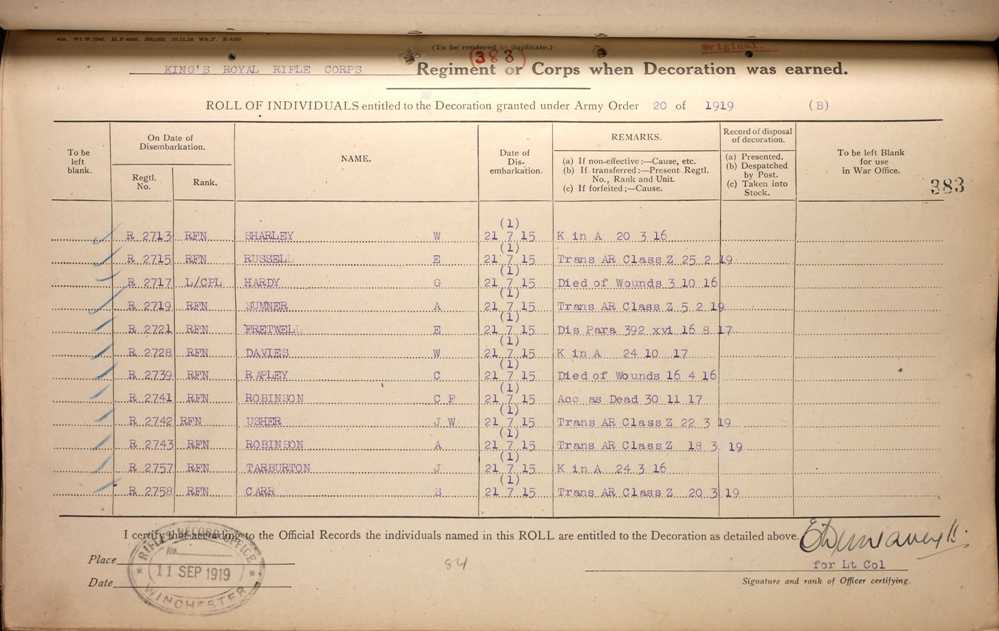 (To be rendered in duplicate.)
Original.
383
KING'S ROYAL RIFLE CORPS Regiment or Corps when Decoration was earned.
ROLL OF INDIVIDUALS entitled to the Decoration granted under Army Order 20 of 1919 (B)
To be left blank. On Date of Disembarkation. Regtl. No. Rank. NAME. Date of Dis-embarkation. REMARKS. (a) If non-effective:—Cause, etc. (b) If transferred:—Present Regtl. No., Rank and Unit. (c) If forfeited;—Cause. Record of disposal of decoration. (a) Presented. (b) Despatched by Post. (c) Taken into Stock. To be left Blank for use in War Office.
383
(1)
R 2713 RFN SHARLEY W 21 7 15 K in A 20 3 16
(1)
R 2715 RFN RUSSELL E 21 7 15 Trans AR Class Z 25 2 19
(1)
R 2717 L/CPL HARDY G 21 7 15 Died of Wounds 3 10 16
(1)
R 2719 RFN SUMNER A 21 7 15 Trans AR Class Z 5 2 19
(1)
R 2721 RFN FRETWELL E 21 7 15 Dis Para 392 xvi 16 8 17
(1)
R 2728 RFN DAVIES W 21 7 15 K in A 24 10 17
(1)
R 2739 RFN RAPLEY C 21 7 15 Died of Wounds 16 4 16
(1)
R 2741 RFN ROBINSON C F 21 7 15 Acc as Dead 30 11 17
(1)
R 2742 RFN USHER J W 21 7 15 Trans AR Class Z 22 3 19
(1)
R 2743 RFN ROBINSON A 21 7 15 Trans AR Class Z 18 3 19
(1)
R 2757 RFN TARBURTON J 21 7 15 K in A 24 3 16
(1)
R 2758 RFN CARR S 21 7 15 Trans AR Class Z 20 3 19
I certify that according to the Official Records the individuals named in this ROLL are entitled to the Decoration as detailed above.
Place
RIFLE RECORD OFFICE
No.
11 SEP 1919
WINCHESTER
84
for Lt Col
Date
Signature and rank of Officer certifying.